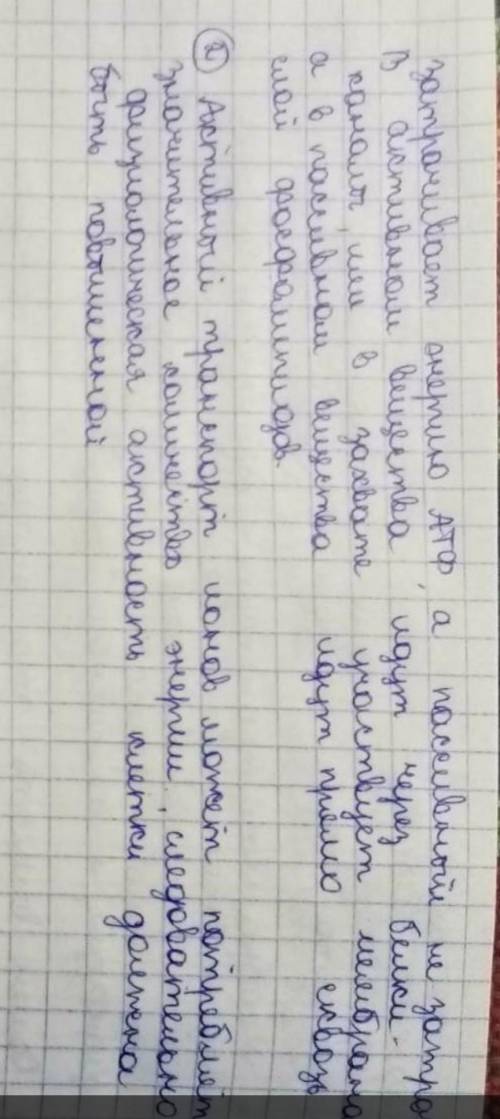 затрачивает энергию АТФ, а пассивный не затра
В активном вещества идут через белки-
каналы, или в захвате участвует мембрана
а в пассивном вещества идут прямо сквозь
слой фосфолипидов.
2 Активный транспорт ионов может потреблят
значительное количество энергии, следовательно
физиологическая активность клетки должна
быть повышенной